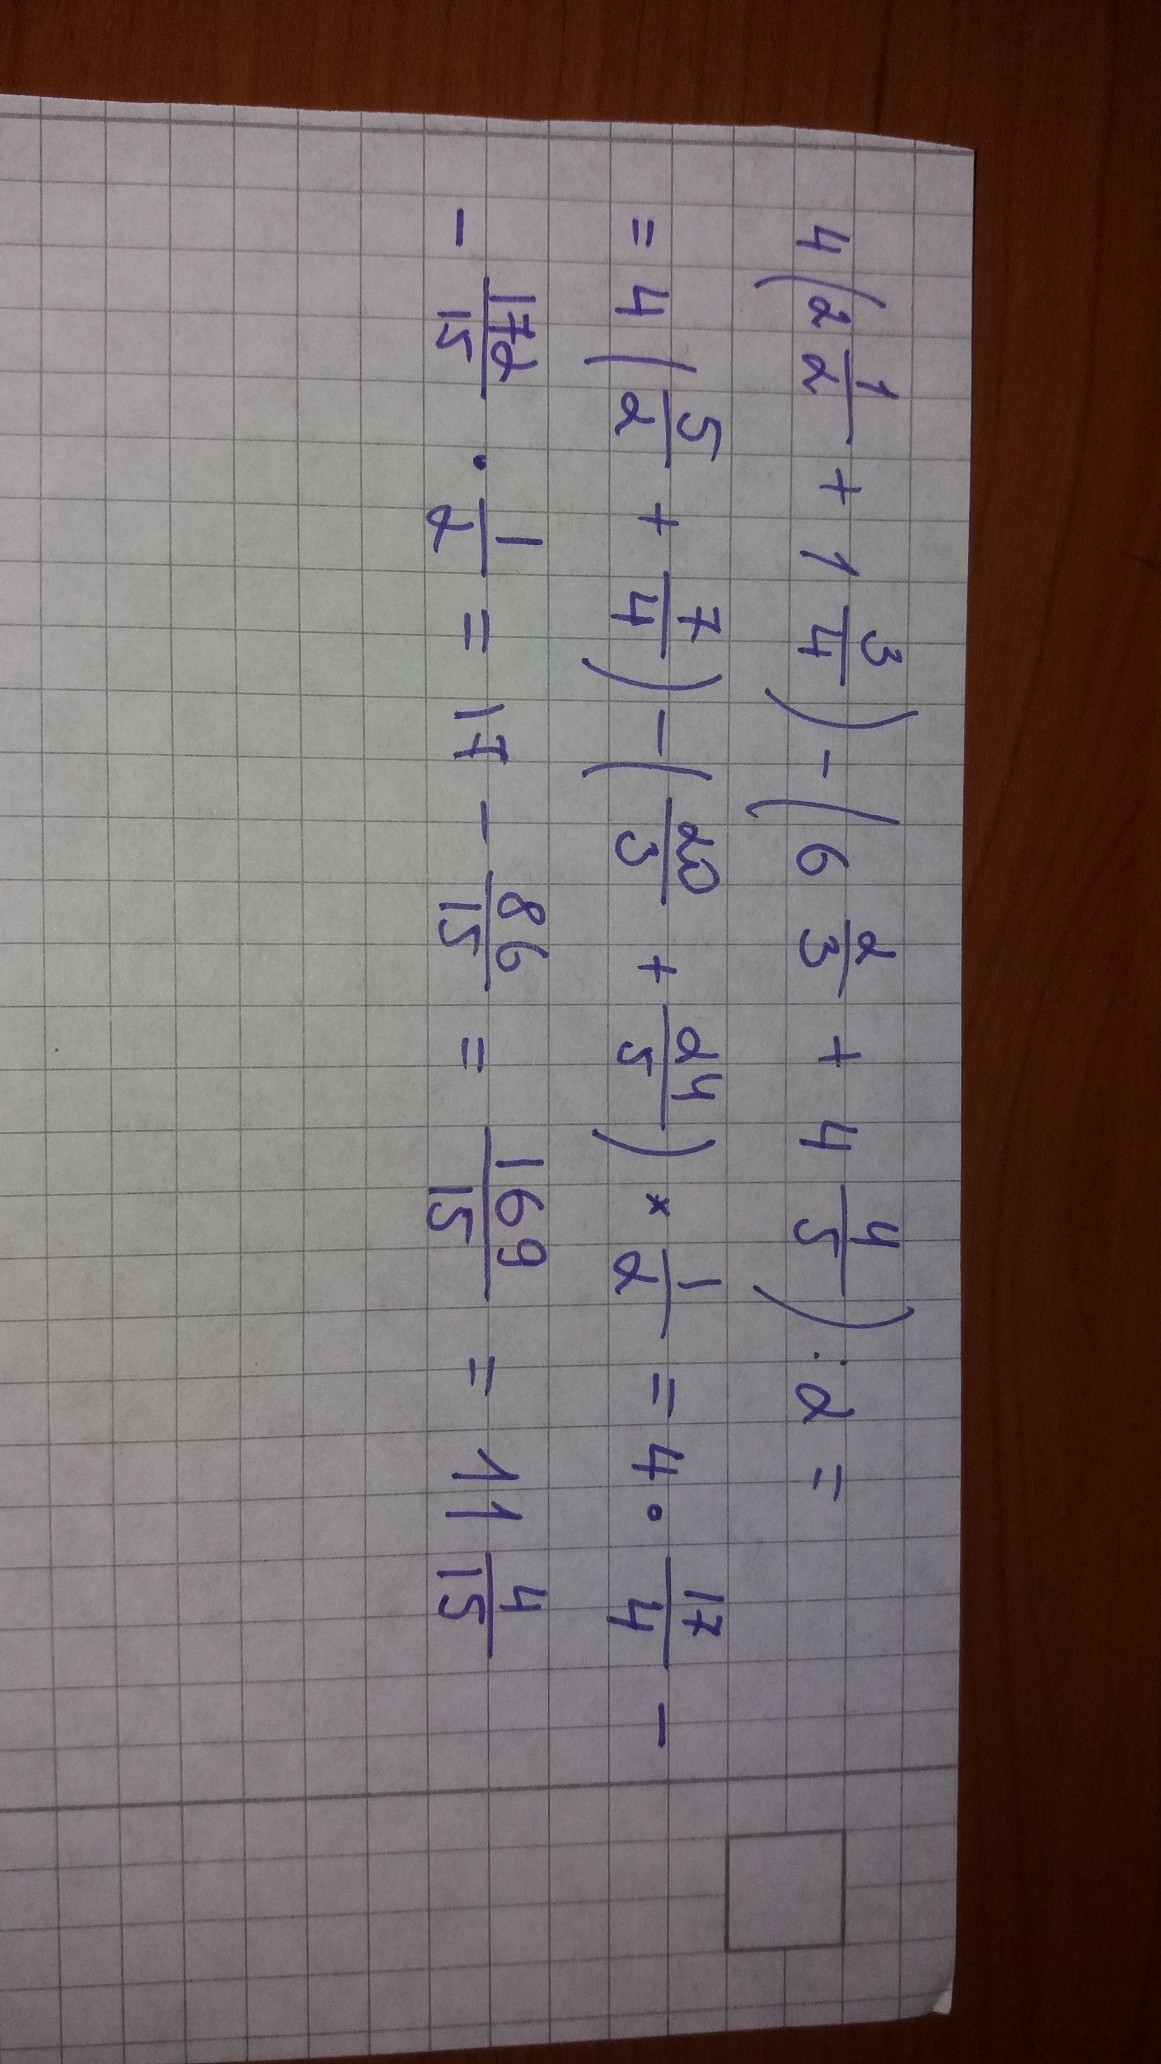 4(2 1/2 + 1 3/4) - (6 2/3 + 4 4/5) : 2 =
= 4(5/2 + 7/4) - (20/3 + 24/5) * 1/2 = 4 · 17/4 -
- 172/15 · 1/2 = 17 - 86/15 = 169/15 = 11 4/15